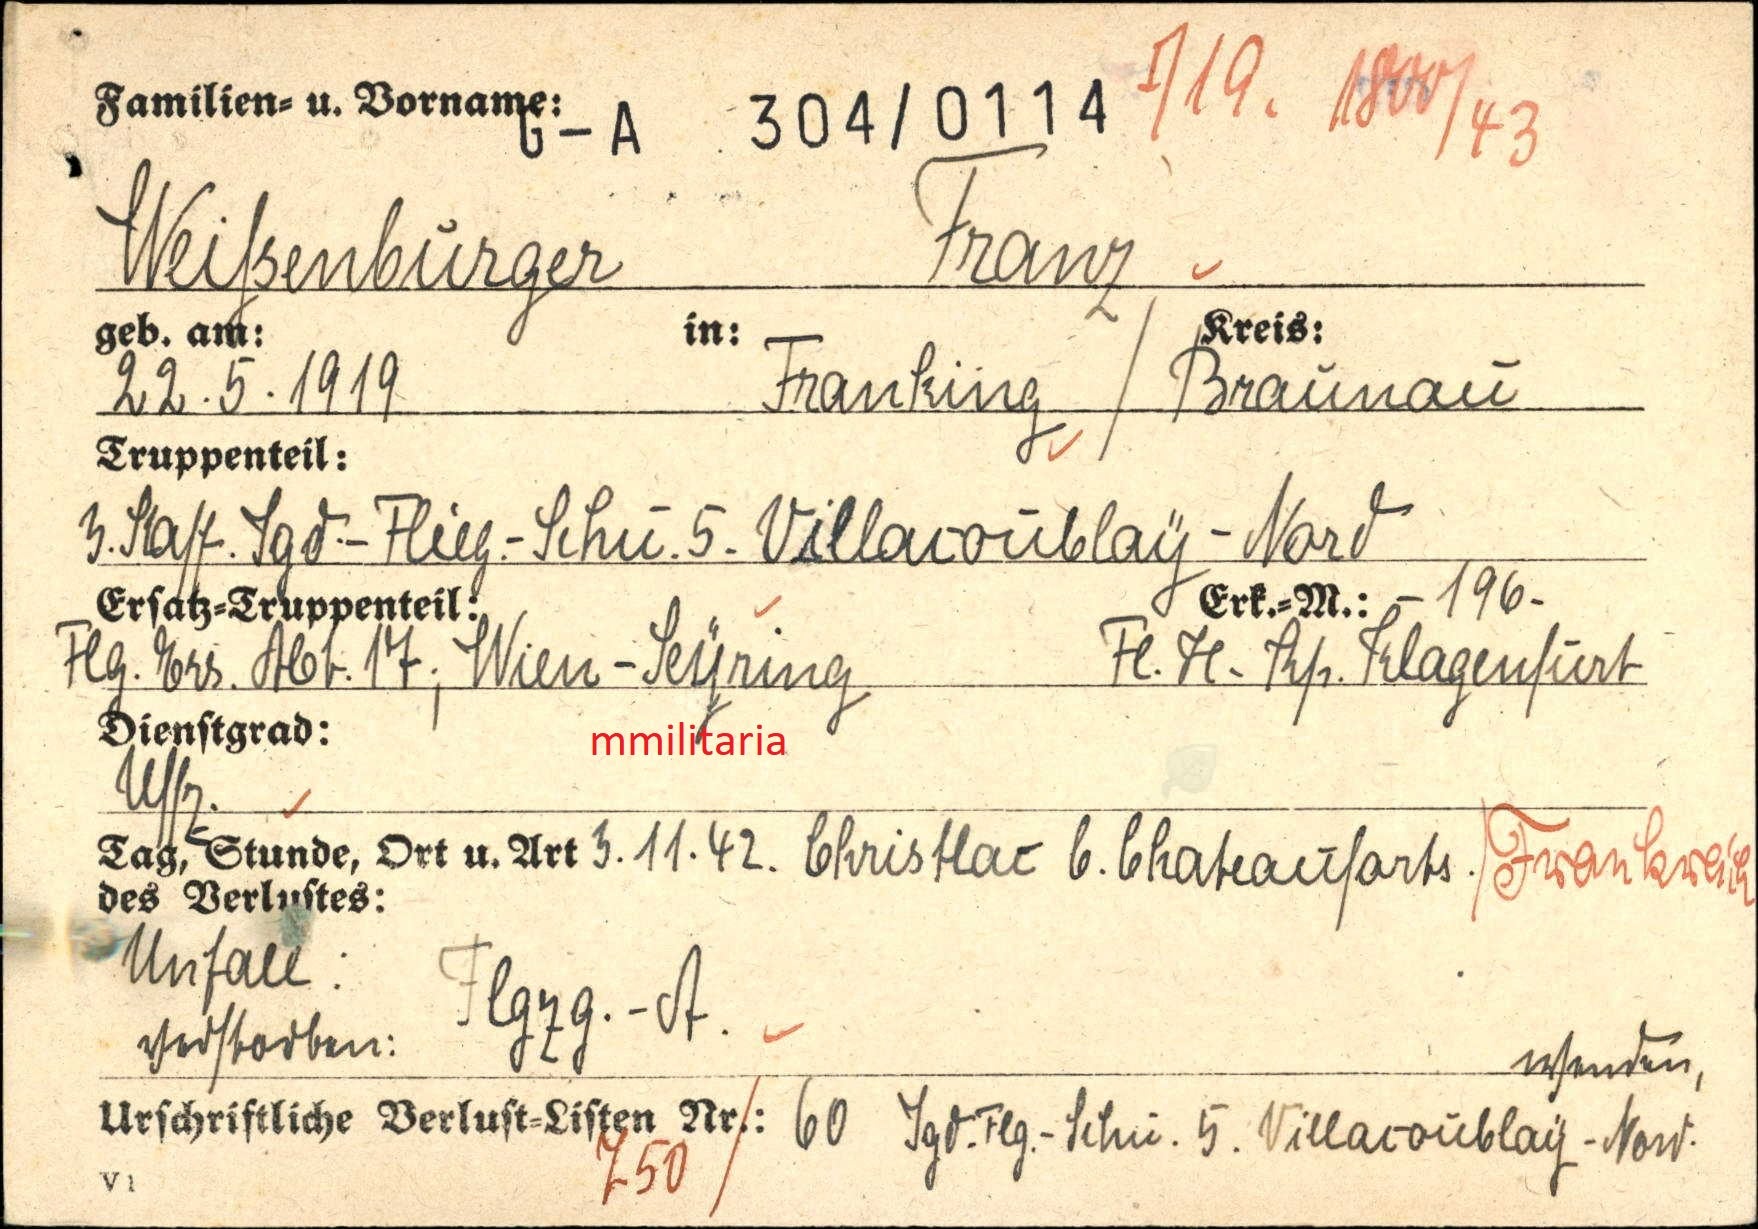 Familien- u. Vorname:
G-A 304/0114 I/19. 1800/43
Weißenburger Franz
geb. am: in: Kreis:
22.5.1919 Franking / Braunau
Truppenteil:
3. Staff. Jgd.-Flieg.-Schu. 5. Villacoublaÿ-Nord
Ersatz-Truppenteil: Erk.-M.: -196-
Flg. Ers. Abt. 17, Wien-Seÿring Fl. H. Kp. Klagenfurt
Dienstgrad:
mmilitaria
Uffz.
Tag, Stunde, Ort u. Art 3.11.42. Christlac b. Chateauforts. / Frankreich
des Verlustes:
Unfall: Flgzg.-A.
verstorben:
wenden,
Urschriftliche Verlust-Listen Nr.: 60 Jgd.-Flg.-Schu. 5. Villacoublaÿ-Nord.
750 /
V 1